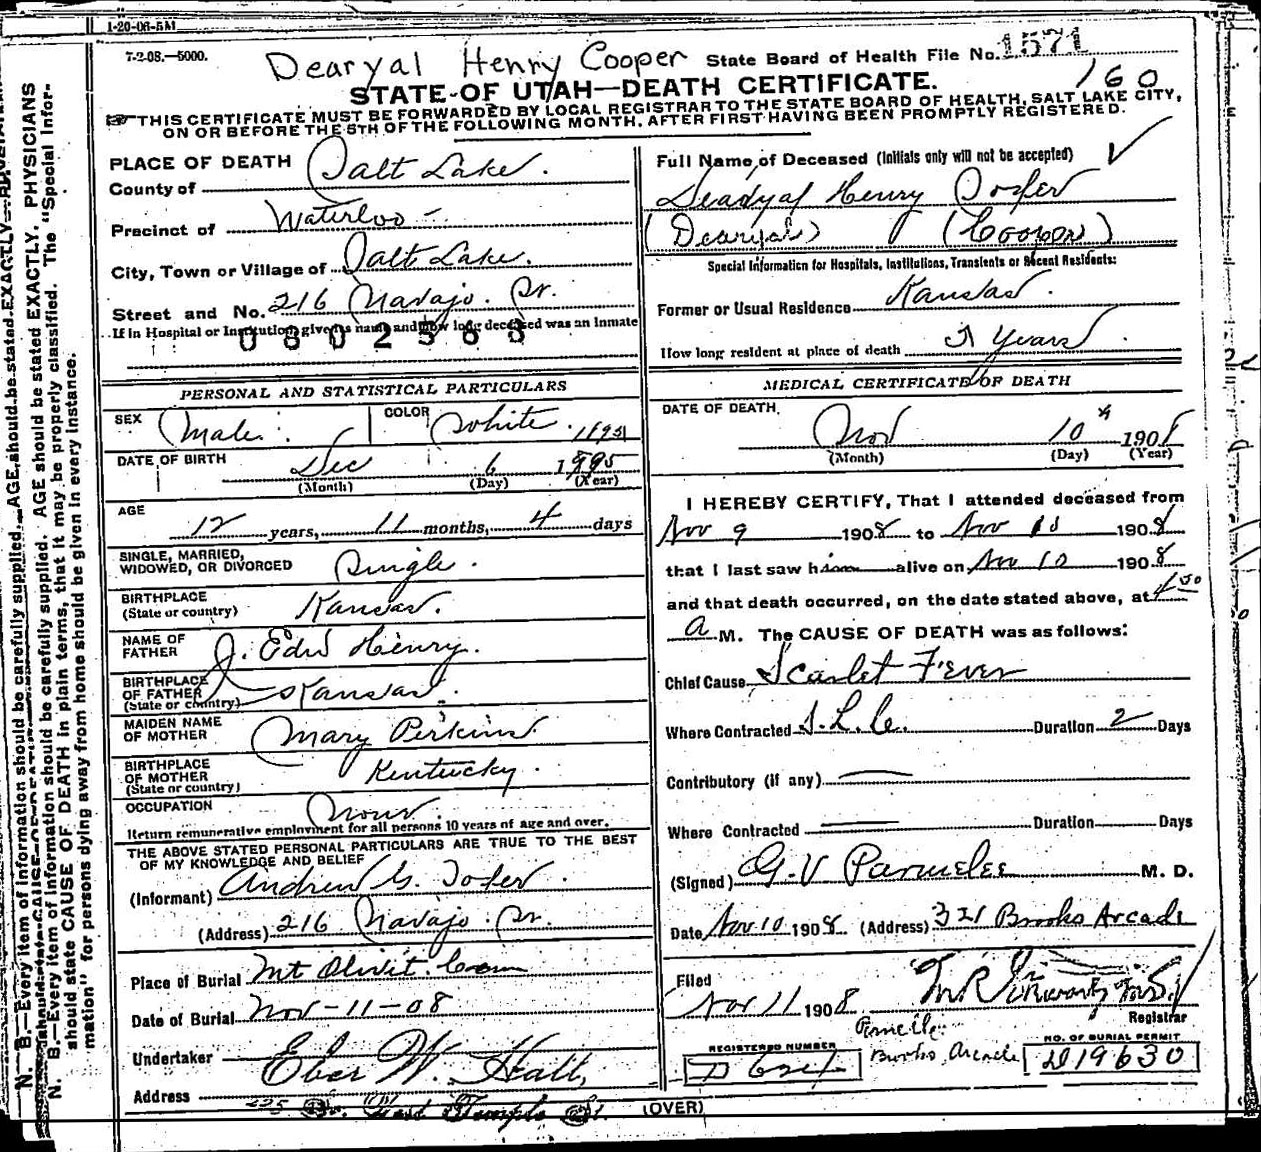 1-20-06-5M
7-2-08.—5000.
Dearyal Henry Cooper State Board of Health File No. 1571
160
STATE OF UTAH—DEATH CERTIFICATE.
THIS CERTIFICATE MUST BE FORWARDED BY LOCAL REGISTRAR TO THE STATE BOARD OF HEALTH, SALT LAKE CITY,
ON OR BEFORE THE 5TH OF THE FOLLOWING MONTH, AFTER FIRST HAVING BEEN PROMPTLY REGISTERED.
PLACE OF DEATH
County of Salt Lake.
Precinct of Waterloo -
City, Town or Village of Salt Lake.
Street and No. 216 Navajo. St.
If in Hospital or Institution, give its name and how long deceased was an inmate
PERSONAL AND STATISTICAL PARTICULARS
SEX Male. COLOR White.
DATE OF BIRTH Dec 6 1895
(Month) (Day) (Year)
AGE
12 years, 11 months, 4 days
SINGLE, MARRIED,
WIDOWED, OR DIVORCED Single.
BIRTHPLACE
(State or country) Kansas.
NAME OF
FATHER J. Edw Henry.
BIRTHPLACE
OF FATHER
(State or country) Kansas.
MAIDEN NAME
OF MOTHER Mary Perkins.
BIRTHPLACE
OF MOTHER
(State or country) Kentucky.
OCCUPATION None.
Return remunerative employment for all persons 10 years of age and over.
THE ABOVE STATED PERSONAL PARTICULARS ARE TRUE TO THE BEST
OF MY KNOWLEDGE AND BELIEF
(Informant) Andrew G.
(Address) 216 Navajo. St.
Place of Burial Mt Olivit. Cem
Date of Burial Nov-11-08
Undertaker Eber W. Hall,
Address 225 So. West Temple St.
(OVER)
Full Name of Deceased (Initials only will not be accepted)
Deadyal Henry
(Dearyal) (Cooper)
Special Information for Hospitals, Institutions, Transients or Recent Residents:
Former or Usual Residence Kansas.
How long resident at place of death Years
MEDICAL CERTIFICATE OF DEATH
DATE OF DEATH,
Nov 10 1908
(Month) (Day) (Year)
I HEREBY CERTIFY, That I attended deceased from
Nov 9 1908 to Nov 10 1908
that I last saw him alive on Nov 10 1908
and that death occurred, on the date stated above, at 4 30
a M. The CAUSE OF DEATH was as follows:
Chief Cause Scarlet Fever
Where Contracted S.L.C. Duration 2 Days
Contributory (if any)
Where Contracted Duration Days
(Signed) G. V Parmelee M. D.
Date Nov 10 1908. (Address) 321 Brooks Arcade
Filed
Nov 11 1908
Registrar
Brooks Arcade
REGISTERED NUMBER
NO. OF BURIAL PERMIT
D19630
N. B.—Every item of information should be carefully supplied. AGE should be stated EXACTLY. PHYSICIANS
should state CAUSE OF DEATH in plain terms, that it may be properly classified. The "Special Infor-
mation" for persons dying away from home should be given in every instance.